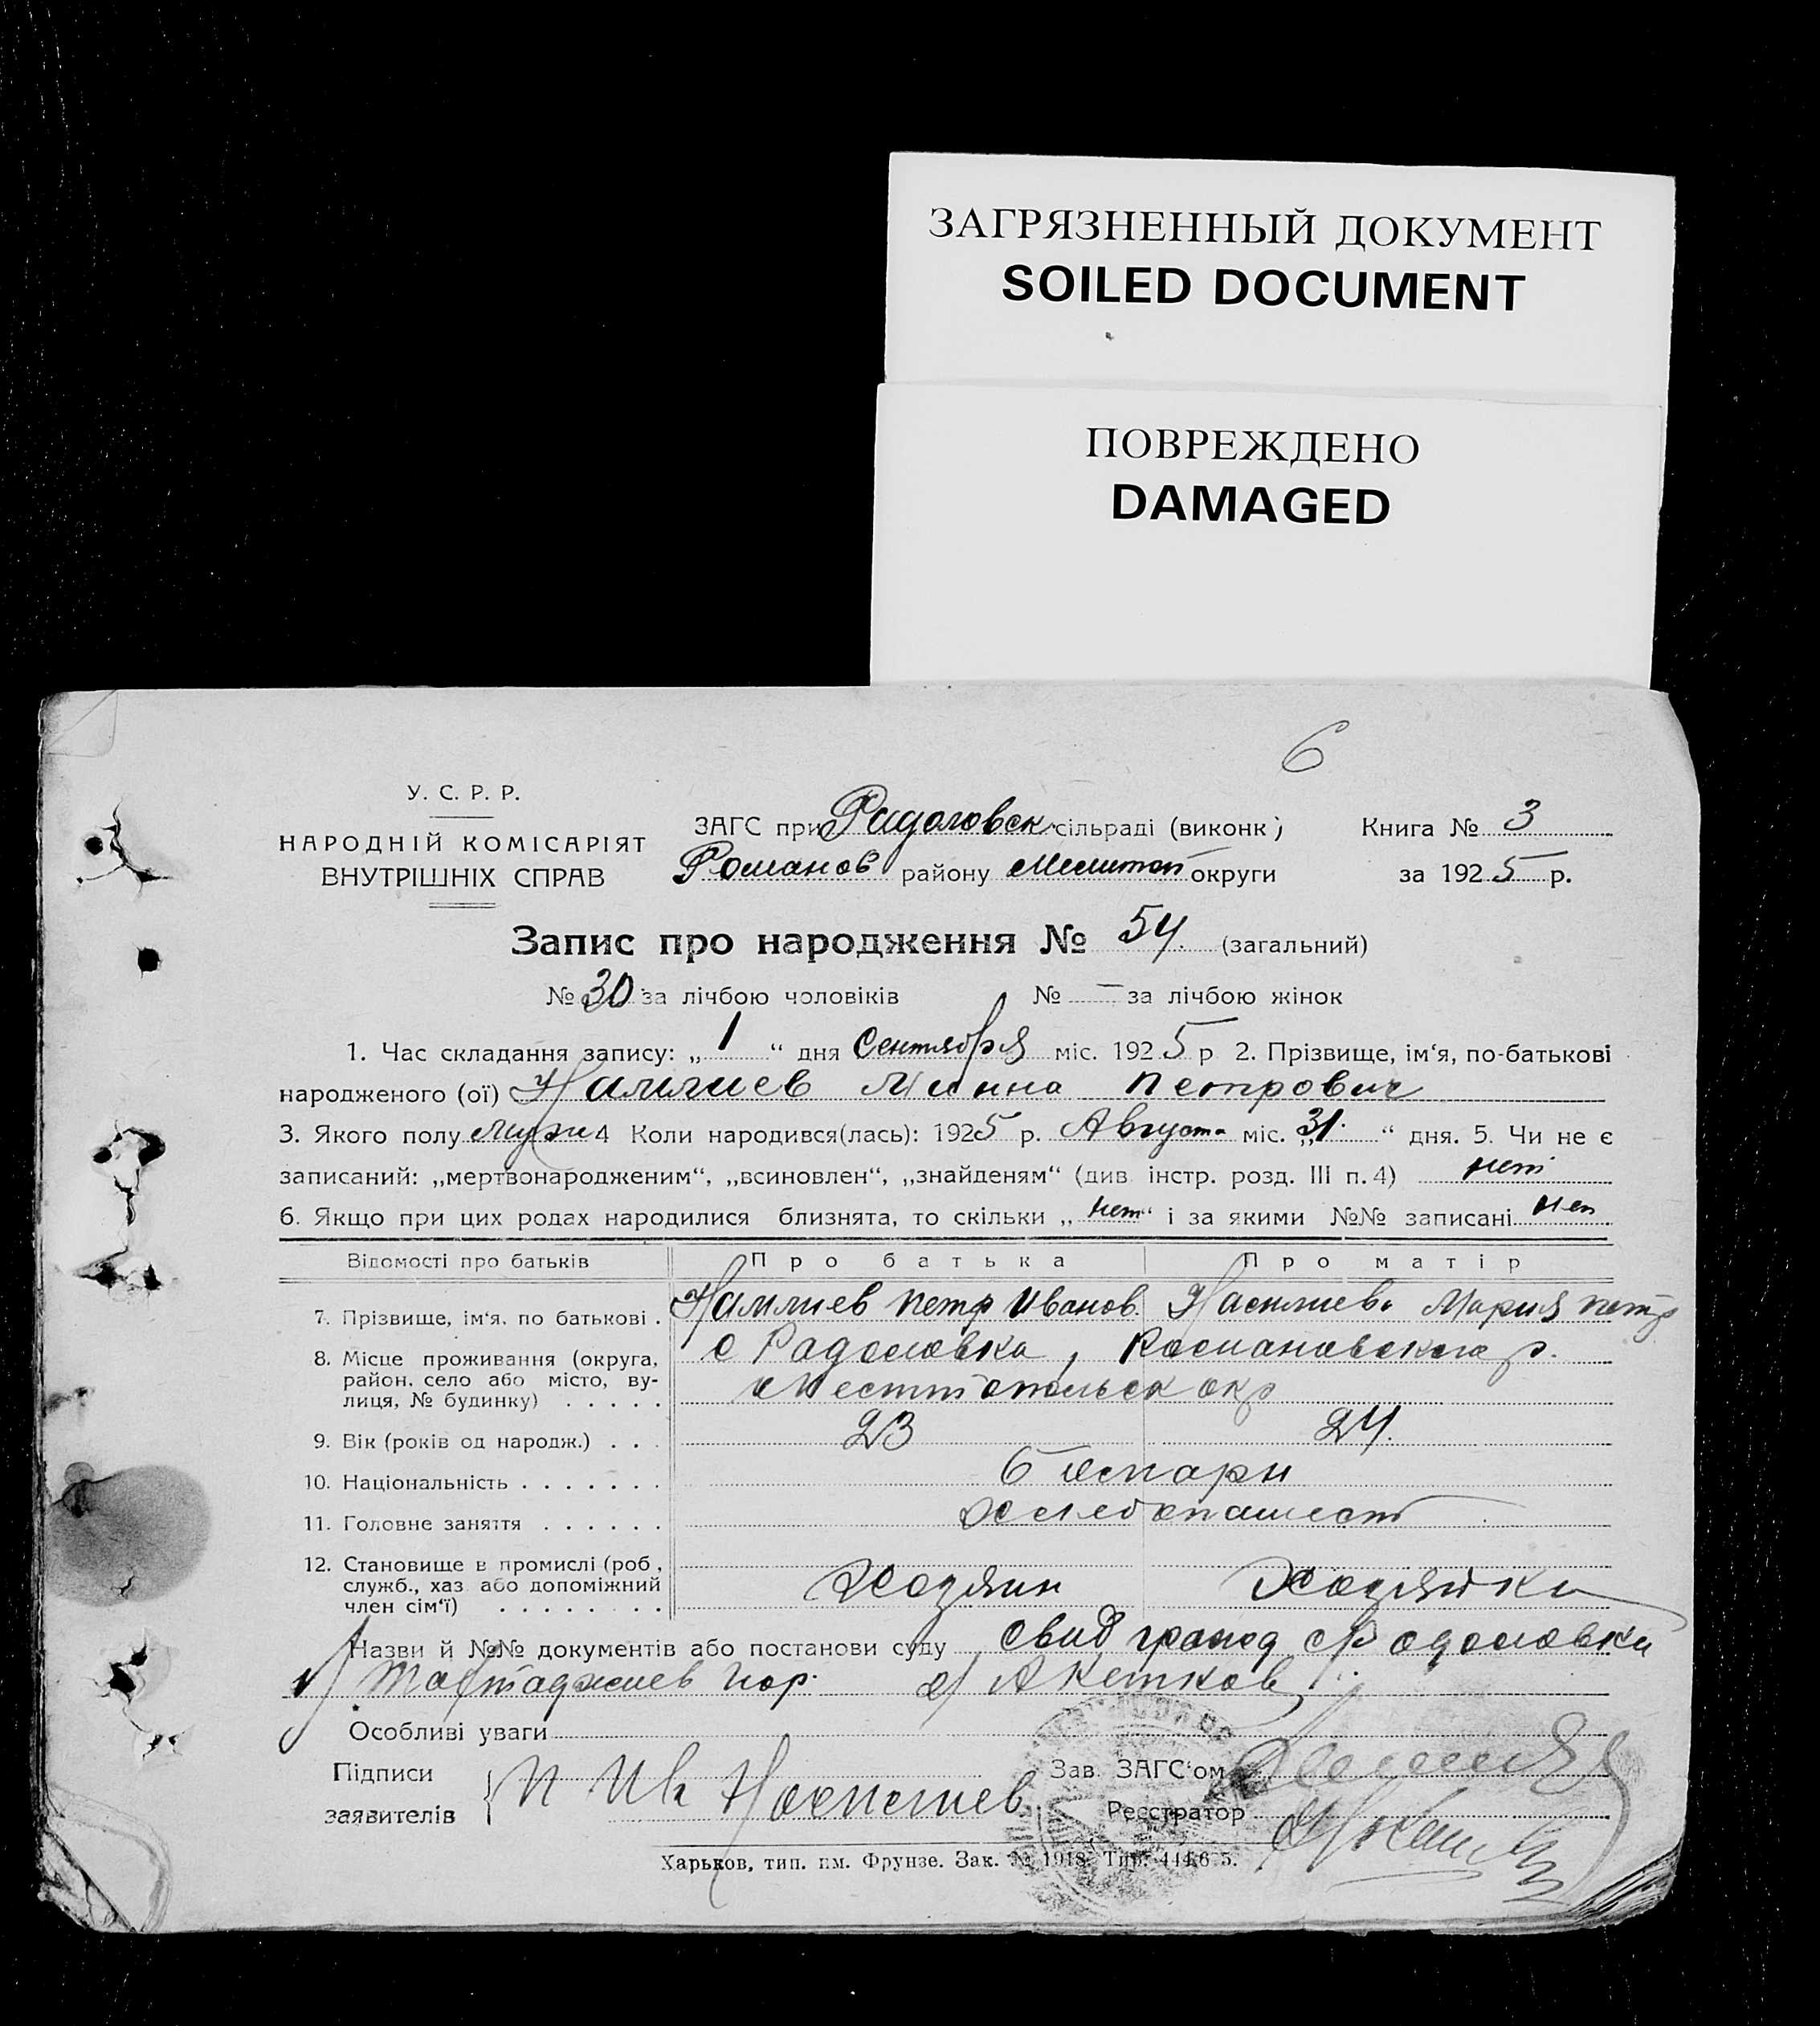 ЗАГРЯЗНЕННЫЙ ДОКУМЕНТ
SOILED DOCUMENT
ПОВРЕЖДЕНО
DAMAGED
6
У. С. Р. Р.
НАРОДНІЙ КОМІСАРІЯТ
ВНУТРІШНІХ СПРАВ
ЗАГС при Радоловск сільраді (виконк) Книга № 3
Романов району Мелитоп округи за 1925 р.
Запис про народження № 54 (загальний)
№ 30 за лічбою чоловіків № – за лічбою жінок
1. Час складання запису: „1“ дня Сентября міс. 1925 р 2. Прізвище, ім‘я, по-батькові
народженого (ої) Петрович
3. Якого полу муж 4 Коли народився(лась): 1925 р. Августа міс. „31“ дня. 5. Чи не є
записаний: „мертвонародженим“, „всиновлен“, „знайденям“ (див. інстр. розд. III п. 4) нет
6. Якщо при цих родах народилися близнята, то скільки „нет“ і за якими №№ записані нет
Відомості про батьків Про батька Про матір
7. Прізвище, ім‘я, по батькові . Петр Иванов. Мария Петр
8. Місце проживання (округа, район, село або місто, вулиця, № будинку) . . . . . с Радоловка, Романовского р.
окр
9. Вік (років од народж.) . . . 23 24.
10. Національність . . . . . . . болгари
11. Головне заняття . . . . . . хлебопашест
12. Становище в промислі (роб., служб., хаз або допоміжний член сім‘ї) . . . . . . . . Хозяин Хозяйка
Назви й №№ документів або постанови суду свид гражд с Радоловки
1) 2)
Особливі уваги
Підписи
заявителів
Зав. ЗАГС‘ом
Реєстратор
Харьков, тип. им. Фрунзе. Зак. № 1918. Тир. 444.6 5.